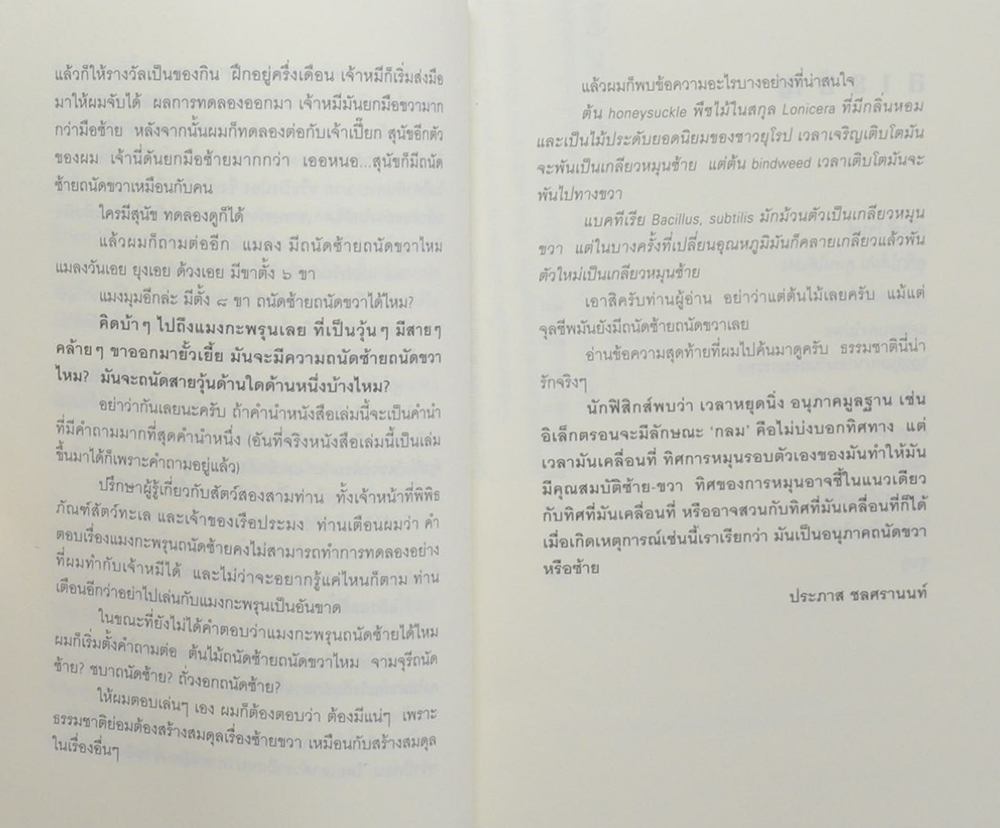 แล้วก็ให้รางวัลเป็นของกิน ฝึกอยู่ครึ่งเดือน เจ้าหมีก็เริ่มส่งมือ
มาให้ผมจับได้ ผลการทดลองออกมา เจ้าหมีมันยกมือขวามาก
กว่ามือซ้าย หลังจากนั้นผมก็ทดลองต่อกับเจ้าเปี๊ยก สุนัขอีกตัว
ของผม เจ้านี่ดันยกมือซ้ายมากกว่า เออหนอ...สุนัขก็มีถนัด
ซ้ายถนัดขวาเหมือนกับคน
ใครมีสุนัข ทดลองดูก็ได้
แล้วผมก็ถามต่ออีก แมลง มีถนัดซ้ายถนัดขวาไหม
แมลงวันเอย ยุงเอย ด้วงเอย มีขาตั้ง ๖ ขา
แมงมุมอีกล่ะ มีตั้ง ๘ ขา ถนัดซ้ายถนัดขวาได้ไหม?
คิดบ้าๆ ไปถึงแมงกะพรุนเลย ที่เป็นวุ้นๆ มีสายๆ
คล้ายๆ ขาออกมายั้วเยี้ย มันจะมีความถนัดซ้ายถนัดขวา
ไหม? มันจะถนัดสายวุ้นด้านใดด้านหนึ่งบ้างไหม?
อย่าว่ากันเลยนะครับ ถ้าคำนำหนังสือเล่มนี้จะเป็นคำนำ
ที่มีคำถามมากที่สุดคำนำหนึ่ง (อันที่จริงหนังสือเล่มนี้เป็นเล่ม
ขึ้นมาได้ก็เพราะคำถามอยู่แล้ว)
ปรึกษาผู้รู้เกี่ยวกับสัตว์สองสามท่าน ทั้งเจ้าหน้าที่พิพิธ
ภัณฑ์สัตว์ทะเล และเจ้าของเรือประมง ท่านเตือนผมว่า คำ
ตอบเรื่องแมงกะพรุนถนัดซ้ายคงไม่สามารถทำการทดลองอย่าง
ที่ผมทำกับเจ้าหมีได้ และไม่ว่าจะอยากรู้แค่ไหนก็ตาม ท่าน
เตือนอีกว่าอย่าไปเล่นกับแมงกะพรุนเป็นอันขาด
ในขณะที่ยังไม่ได้คำตอบว่าแมงกะพรุนถนัดซ้ายได้ไหม
ผมก็เริ่มตั้งคำถามต่อ ต้นไม้ถนัดซ้ายถนัดขวาไหม จามจุรีถนัด
ซ้าย? ชบาถนัดซ้าย? ถั่วงอกถนัดซ้าย?
ให้ผมตอบเล่นๆ เอง ผมก็ต้องตอบว่า ต้องมีแน่ๆ เพราะ
ธรรมชาติย่อมต้องสร้างสมดุลเรื่องซ้ายขวา เหมือนกับสร้างสมดุล
ในเรื่องอื่นๆ
แล้วผมก็พบข้อความอะไรบางอย่างที่น่าสนใจ
ต้น honeysuckle พืชไม้ในสกุล Lonicera ที่มีกลิ่นหอม
และเป็นไม้ประดับยอดนิยมของชาวยุโรป เวลาเจริญเติบโตมัน
จะพันเป็นเกลียวหมุนซ้าย แต่ต้น bindweed เวลาเติบโตมันจะ
พันไปทางขวา
แบคทีเรีย Bacillus, subtilis มักม้วนตัวเป็นเกลียวหมุน
ขวา แต่ในบางครั้งที่เปลี่ยนอุณหภูมิมันก็คลายเกลียวแล้วพัน
ตัวใหม่เป็นเกลียวหมุนซ้าย
เอาสิครับท่านผู้อ่าน อย่าว่าแต่ต้นไม้เลยครับ แม้แต่
จุลชีพมันยังมีถนัดซ้ายถนัดขวาเลย
อ่านข้อความสุดท้ายที่ผมไปค้นมาดูครับ ธรรมชาตินี่น่า
รักจริงๆ
นักฟิสิกส์พบว่า เวลาหยุดนิ่ง อนุภาคมูลฐาน เช่น
อิเล็กตรอนจะมีลักษณะ ‘กลม’ คือไม่บ่งบอกทิศทาง แต่
เวลามันเคลื่อนที่ ทิศการหมุนรอบตัวเองของมันทำให้มัน
มีคุณสมบัติซ้าย-ขวา ทิศของการหมุนอาจชี้ในแนวเดียว
กับทิศที่มันเคลื่อนที่ หรืออาจสวนกับทิศที่มันเคลื่อนที่ก็ได้
เมื่อเกิดเหตุการณ์เช่นนี้เราเรียกว่า มันเป็นอนุภาคถนัดขวา
หรือซ้าย
ประภาส ชลศรานนท์